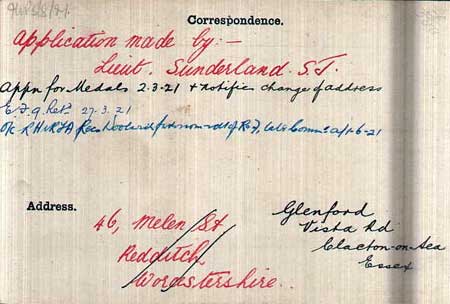 Correspondence.
Application made by:-
Lieut. Sunderland. S.J.
Appn for Medals 2.3.21 & notifies change of address
E.F.9. Retd 27.3.21
O/c RH & RFA
Address.
46, Melen St
Redditch,
Worcestershire.
Glenford
Vista Rd
Clacton-on-Sea
Essex